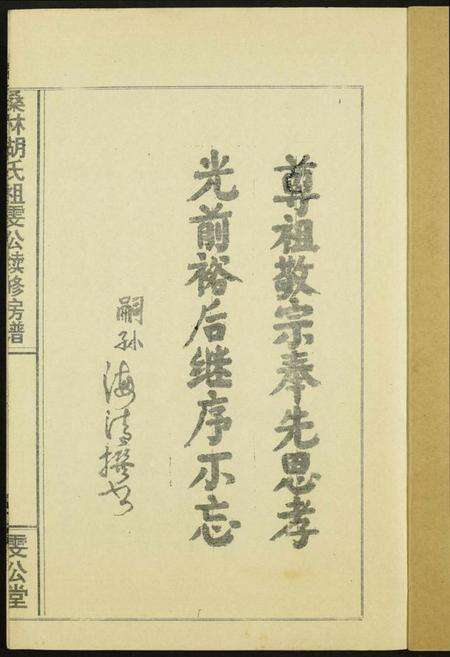 尊祖敬宗奉先思孝
光前裕后继序不忘
嗣孙海清撰书
桑林胡氏祖雯公续修房谱
雯公堂